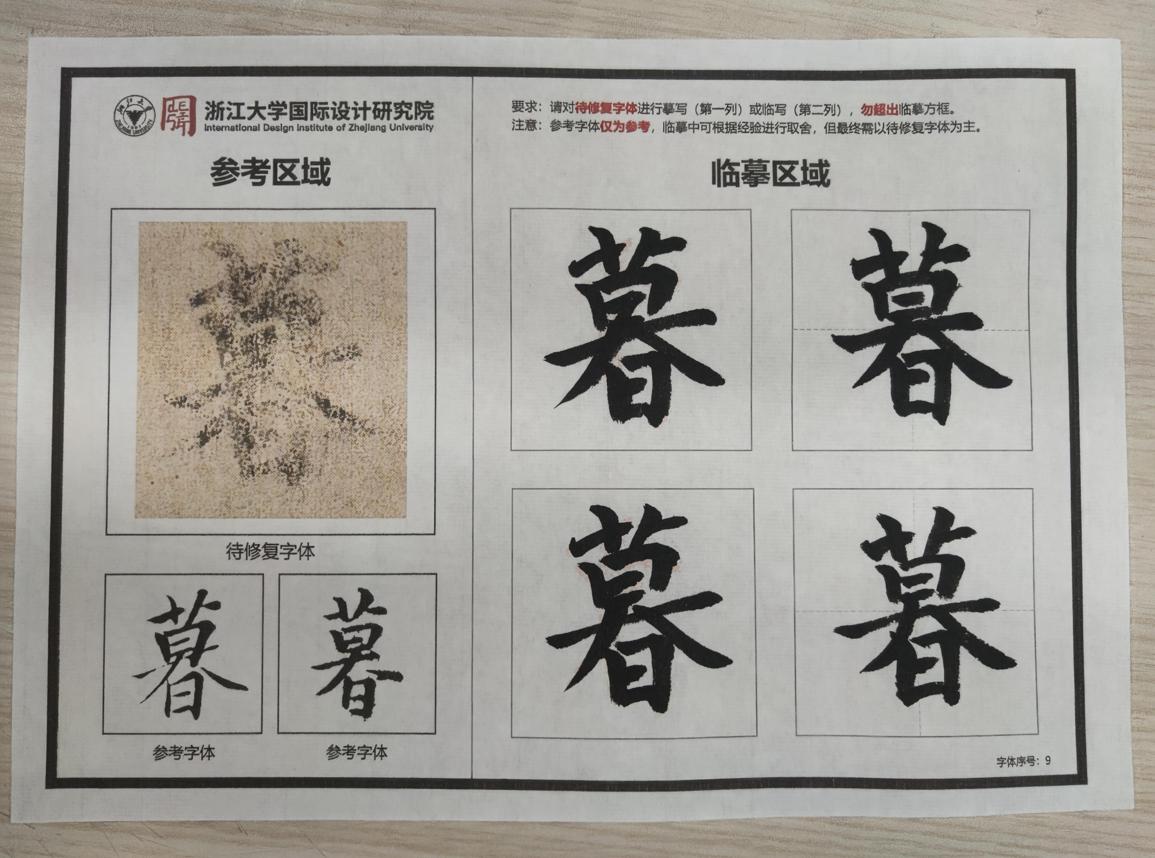 浙江大学国际设计研究院
International Design Institute of Zhejiang University
参考区域
暮
待修复字体
暮
暮
参考字体
参考字体
要求：请对待修复字体进行摹写（第一列）或临写（第二列），勿超出临摹方框。
注意：参考字体仅为参考，临摹中可根据经验进行取舍，但最终需以待修复字体为主。
临摹区域
暮
暮
暮
暮
字体序号：9